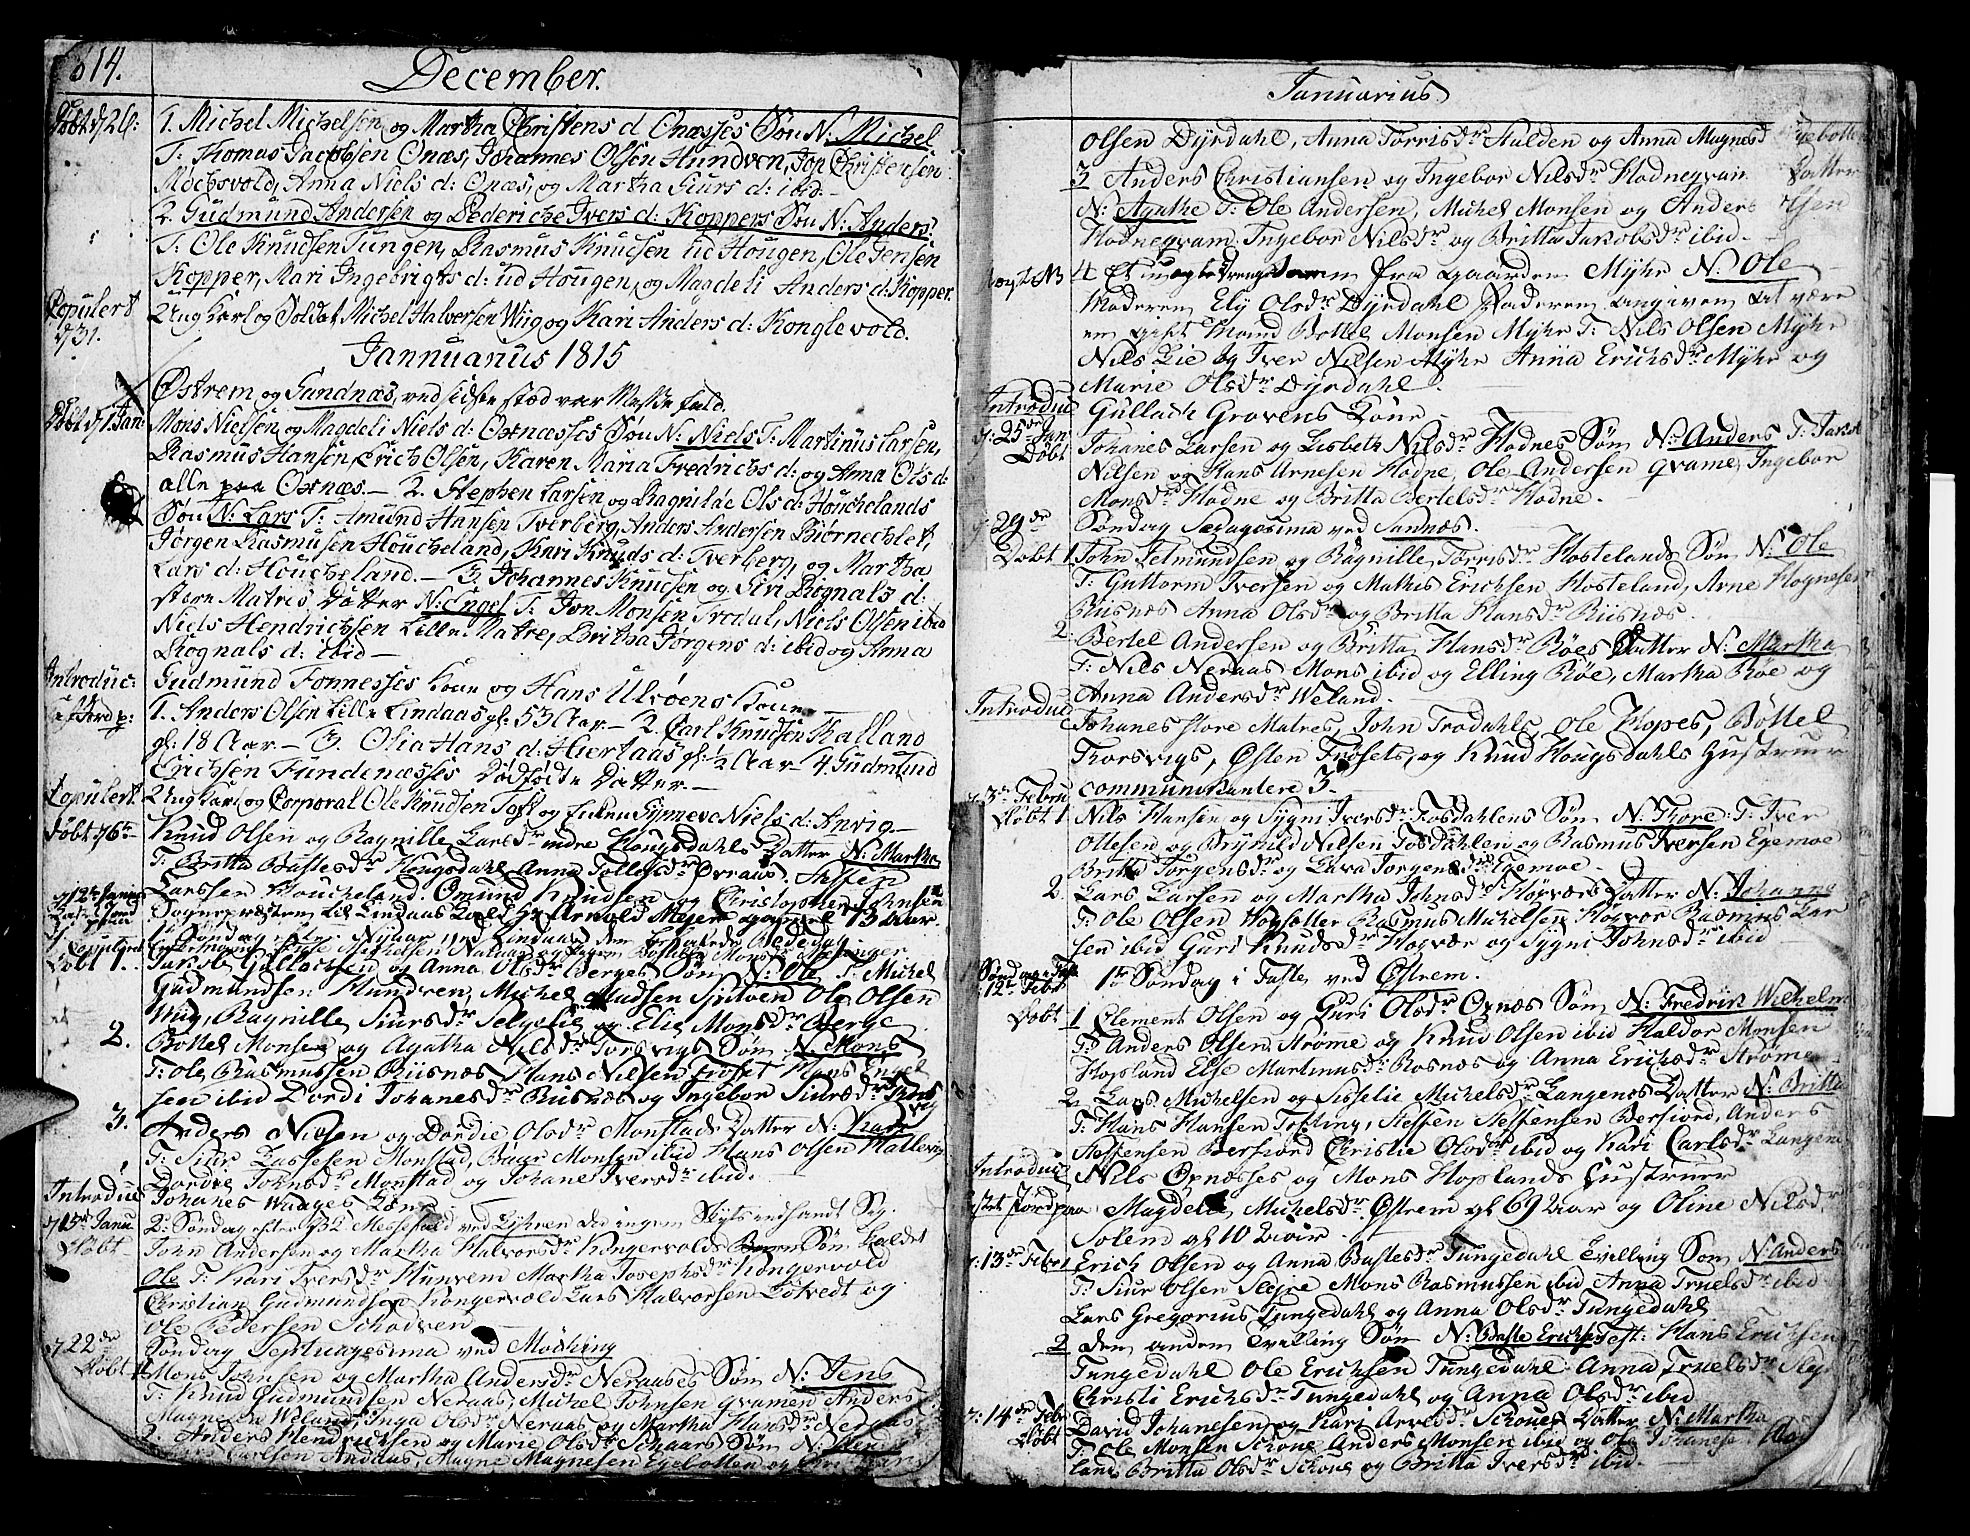 614.
December.
Døbt d/26:
1. Michel Michelsen og Martha Christens d. Onæsses Søn N: Michel
T: Thomas Jacobsen Onæs, Johannes Olsen Hundven, Jon Christensen
Mochsvold, Anna Niels d: Onæs, og Martha Siurs d: ibid:-
2. Gudmund Andersen og Pederiche Ivers d: Koppers Søn N: Anders.
T: Ole Knudsen Tungen, Rasmus Knudsen ud Hougen, Ole Jensen
Kopper, Mari Ingebrigts d: ud Hougen, og Magdeli Anders d: Kopper.
Copulert
d/31.
Ung Karl og Soldat Michel Halversen Wiig og Kari Anders d: Konglevold.
Jannuarius 1815
Østrem og Sundnæs, ved sidste stæd var Messe fald.
Døbt d/1 Jan:
Mons Nielsen og Magdeli Niels d: Oxnæsses Søn N: Niels T: Martinus Larsen,
Rasmus Hansen, Erich Olsen, Karen Maria Fredrichs d: og Anna Ols d:
alle paa Oxnæs.- 2. Stephen Larsen og Ragnilde Ols d: Houchelands
Søn N: Lars T: Amund Hansen Tverberg, Anders Andersen Biørnechlet,
Jørgen Rasmusen Houcheland, Kari Knuds d: Tverberg, og Martha
Lars d: Houcheland.- 3. Johannes Knudsen og Siri Rognals d:
større Matres Datter N: Engel T: Jon Monsen Trodal, Niels Olsen ibid
Niels Hendrichsen Lille Matre, Britha Jørgens d: ibid og Anna
Rognals d: ibid-
Introduc:
Gudmund Fonnesses Kone og Hans Ulvøens Kone.-
1. Anders Olsen Lille Lindaas gl: 53 Aar- 2. Carl Knudsen Kalland
gl: 18 Aar.- 3. Olia Hans d: Hiertaas gl: 1/2 Aar- 4. Gudmund
Erichsen Fundenæsses Dødfødte Datter.-
Copulert
Ung Karl og Corporal Ole Knudsen Toft og Enken Synneve Niels d: Anvig-
Døbt d/6te
Knud Olsen og Ragnille Larsdr indre Hougsdahls Datter N: Martha
T: Britta Bastesdr Hougsdahl Anna Tollefsdr Øvraas. Steffen
Larssen Houcheland. Omund Knudsen og Christopher Johnsen
Sognepræsten til Lindaas Kald Hr Arnold Mejer gammel 73 aar.
Døbt 1.
Jakob Gullachsen og Anna Olsdr Berges Søn N: Ole T. Michel
Gudmundsen Hundven, Michel Knudsen Spilven Ole Olsen
Wiig, Ragnille Siursdr Selvelie og Elie Monsdr Berge
2.
Bottel Monsen og Agatha Nilsdr Torsvigs Søn N. Mons
T: Ole Rasmussen Riisnæs Hans Nilsen Froset Hans Engel
sen ibid Dordi Johanesdr Riisnæs og Ingebor Siursdr Tors
vig
3.
Anders Nilsen og Dordie Olsdr Monstads Datter N: Kari
T. Siur Lassesen Monstad, Baar Monsen ibid Hans Olsen Halleviig
Dordie Johnsdr Monstad og Johane Iversdr ibid.
Introduc
Johanes Waages Kone
d/15de Janu
2: Søndag efter H3K Messefald ved Lygren da ingen Skyts indfandt Sig.
Døbt
John Andersen og Martha Halvorsdr Kongervolds Søn kaldet
Ole T: Kari Iversdr Hunvem Martha Josephsdr Kongervold
Christian Gudmundsen Kongervold Lars Halvorsen Løtvedt og
Ole Pedersen Schodven
d/22de
Søndag Septuagesima ved Mockring
Døbt 1
Mons Johnsen og Martha Andersdr Neraases Søn N: Jens
T: Knud Gudmundsen Neraas, Michel Johnsen Qvamen Anders
Magnesen Weland, Inga Olsdr Neraas og Martha Hansdr Neraas
2. Anders Hendrichsen og Marie Olsdr Schaars Søn N: Hendr
Carlsen Andaas, Magne Magnesen Egebotten og
Januarius
Olsen Dyrdahl, Anna Torrisdr Halden og Anna Magnesd Egebotten
3 Anders Christiansen og Ingebor Nilsdr Hodneqvam Datter
N: Agathe T: Ole Andersen, Michel Monsen og Anders Olsen
Hodneqvam. Ingebor Nilsdr og Britta Jakobsdr ibid.-
4 Et uægte drengebarn fra gaarden Myhr N. Ole
Moderen Ely Olsdr Dyrdahl Faderen angiven at være
en gift Mand Bottel Monsen Myhr T: Nils Olsen Myhr
Nils Lie og Iver Nilsen Myhr Anna Erichsdr Myhr og
Marie Olsdr Dyrdahl
Introduc
Gullach Grovens Kone-
d: 25de Jan
Døbt
Johanes Larsen og Lisbeth Nilsdr Hodnes Søn N: Anders T: Jakob
Nilsen og Hans Arnesen Hodne, Ole Andersen Qvame, Ingebor
Monsdr Hodne og Britta Bertelsdr Hodne.-
d: 29de
Søndag Sexagesima ved Sannæs.
Døbt 1
John Helmundsen og Ragnille Torrisdr Hostelands Søn N: Ole
T: Guttorm Iversen og Mathis Erichsen Hosteland, Arne Hognesen
Riisnæs Anna Olsdr og Britta Hansdr Riisnæs.
2
Bertel Andersen og Britta Hansdr Røes Datter N: Martha
T: Nils Neraas Mons ibid og Elling Røe, Martha Røe og
Anna Andersdr Weland.
Introduc
Johanes store Matres, John Trodahls, Ole Hopes, Bottel
Torsvigs, Østen Frosets, og Knud Hougsdahls Hustruer
communikantere 3.
d: 3de Febru
Døbt 1
Nils Hansen og Sygni Iversdr Fosdahlens Søn N. Tore: T: Iver
Ottesen og Brynild Nilsen Fosdahlen og Rasmus Iversen Egemoe
Britta Jørgensdr og Lava Jørgensdr Egemoe.
2.
Lars Larsen og Martha Johnsdr Hopværs Datter N: Johanna
T: Ole Olsen Rasmus Michelsen Rasmus Lar
sen ibid Guri Knudsdr og Sygni Johnsdr ibid
Søndag i Faste
12te Febr
1te Søndag i Faste ved Østrem.
Døbt 1
Clement Olsen og Guri Olsdr Oxnæs Søn N: Fredrik Wilhelm
T: Anders Olsen Strøme og Knud Olsen ibid Haldor Monsen
Hopland Else Martinusdr Rosnæs og Anna Erichsdr Strøme
2
Lars Michelsen og Sisselie Michelsdr Langenes Datter N: Britta
T: Hans Hansen Tofting, Steffen Steffensen Berfiord, Anders
Steffensen Berfiord Christie Olsdr ibid og Kari Carlsdr Langene
Introduc
Nils Oxnæsses og Mons Hoplands Hustruer
kastet Jord paa
Magdeli Michelsdr Østrem gl 69 aar og Oline Nilsdr
Solem gl 10 aar.
d: 13de Febr
Erich Olsen og Anna Bastesdr Tungedahl Tvilling Søn N: Anders
T: Siur Olsen Sleire Mons Rasmussen ibid Anna Truelsdr ibid
Lars Gregorius Tungedahl og Anna Olsdr Tungedahl
2
den anden Tvilling Søn N: Baste Erichsen Test: Hans Erichsen
Tungedahl Ole Erichsen Tungedahl. Anna Truelsdr
Christi Erichsdr Tungedahl og Anna Olsdr ibid
d: 14de Febr
Døbt
David Johanesen og Kari Arnesdr Schoues Datter N: Martha
T: Ole Monsen Schoue Anders Monsen ibid og Ole Johanesen
land Britta Olsdr Schoue og Britta Iversdr ibid.-